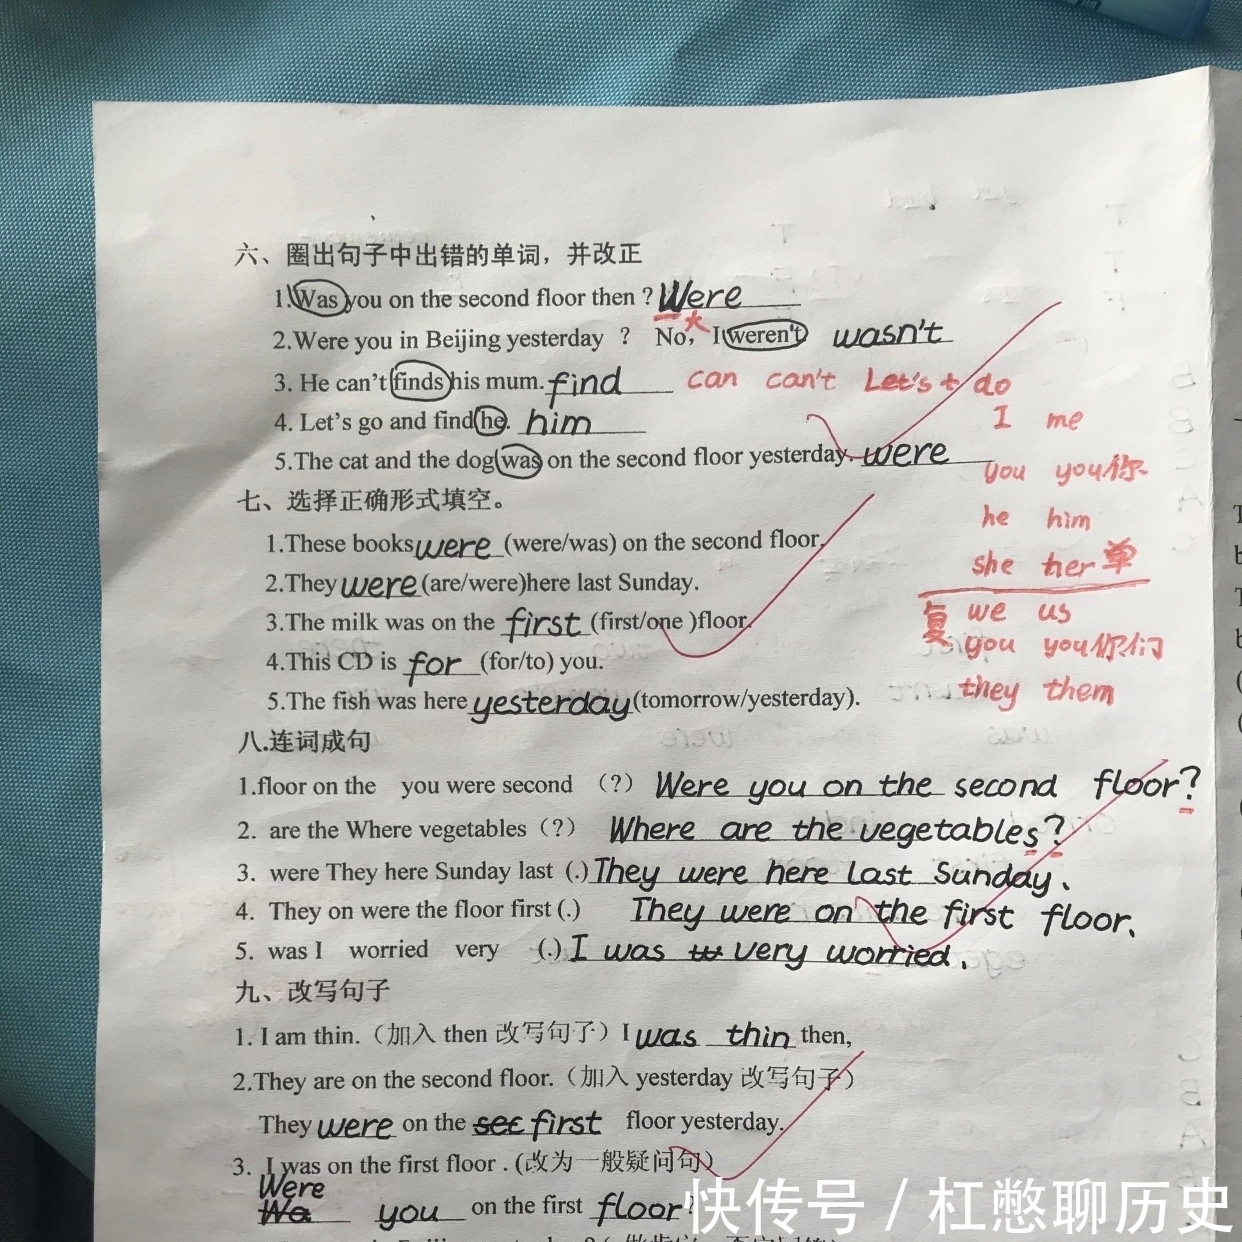 六、圈出句子中出错的单词，并改正
1.Was you on the second floor then ? Were
2.Were you in Beijing yesterday ? No, I weren't wasn't
3. He can't finds his mum. find can can't Let's + do
4. Let's go and find he. him I me
5.The cat and the dog was on the second floor yesterday. were
you you你
七、选择正确形式填空。
he him
1.These books were (were/was) on the second floor.
she her 单
2.They were (are/were)here last Sunday.
复 we us
3.The milk was on the first (first/one )floor.
you you你们
4.This CD is for (for/to) you.
they them
5.The fish was here yesterday (tomorrow/yesterday).
八.连词成句
1.floor on the you were second （?） Were you on the second floor?
2. are the Where vegetables（?） Where are the vegetables?
3. were They here Sunday last (.) They were here last Sunday.
4. They on were the floor first (.) They were on the first floor.
5. was I worried very (.) I was very worried.
九、改写句子
1. I am thin.（加入 then 改写句子）I was thin then,
2.They are on the second floor.（加入 yesterday 改写句子）
They were on the sec first floor yesterday.
3. I was on the first floor . (改为一般疑问句)
Were
Wa you on the first floor?
快传号 / 杠憋聊历史